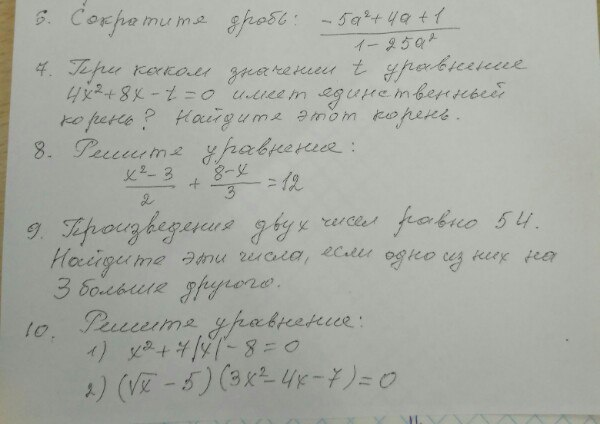 6. Сократите дробь: (-5a²+4a+1)/(1-25a²)
7. При каком значении t уравнение
4x²+8x-t=0 имеет единственный
корень? Найдите этот корень.
8. Решите уравнение:
(x²-3)/2 + (8-x)/3 = 12
9. Произведение двух чисел равно 54.
Найдите эти числа, если одно из них на
3 больше другого.
10. Решите уравнение:
1) x²+7|x|-8=0
2) (√x-5)(3x²-4x-7)=0